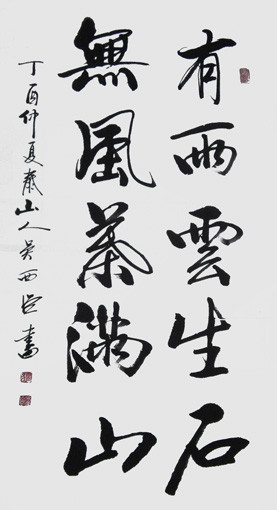 有雨雲生石
無風葉滿山
丁酉仲夏泰山人吴西臣書